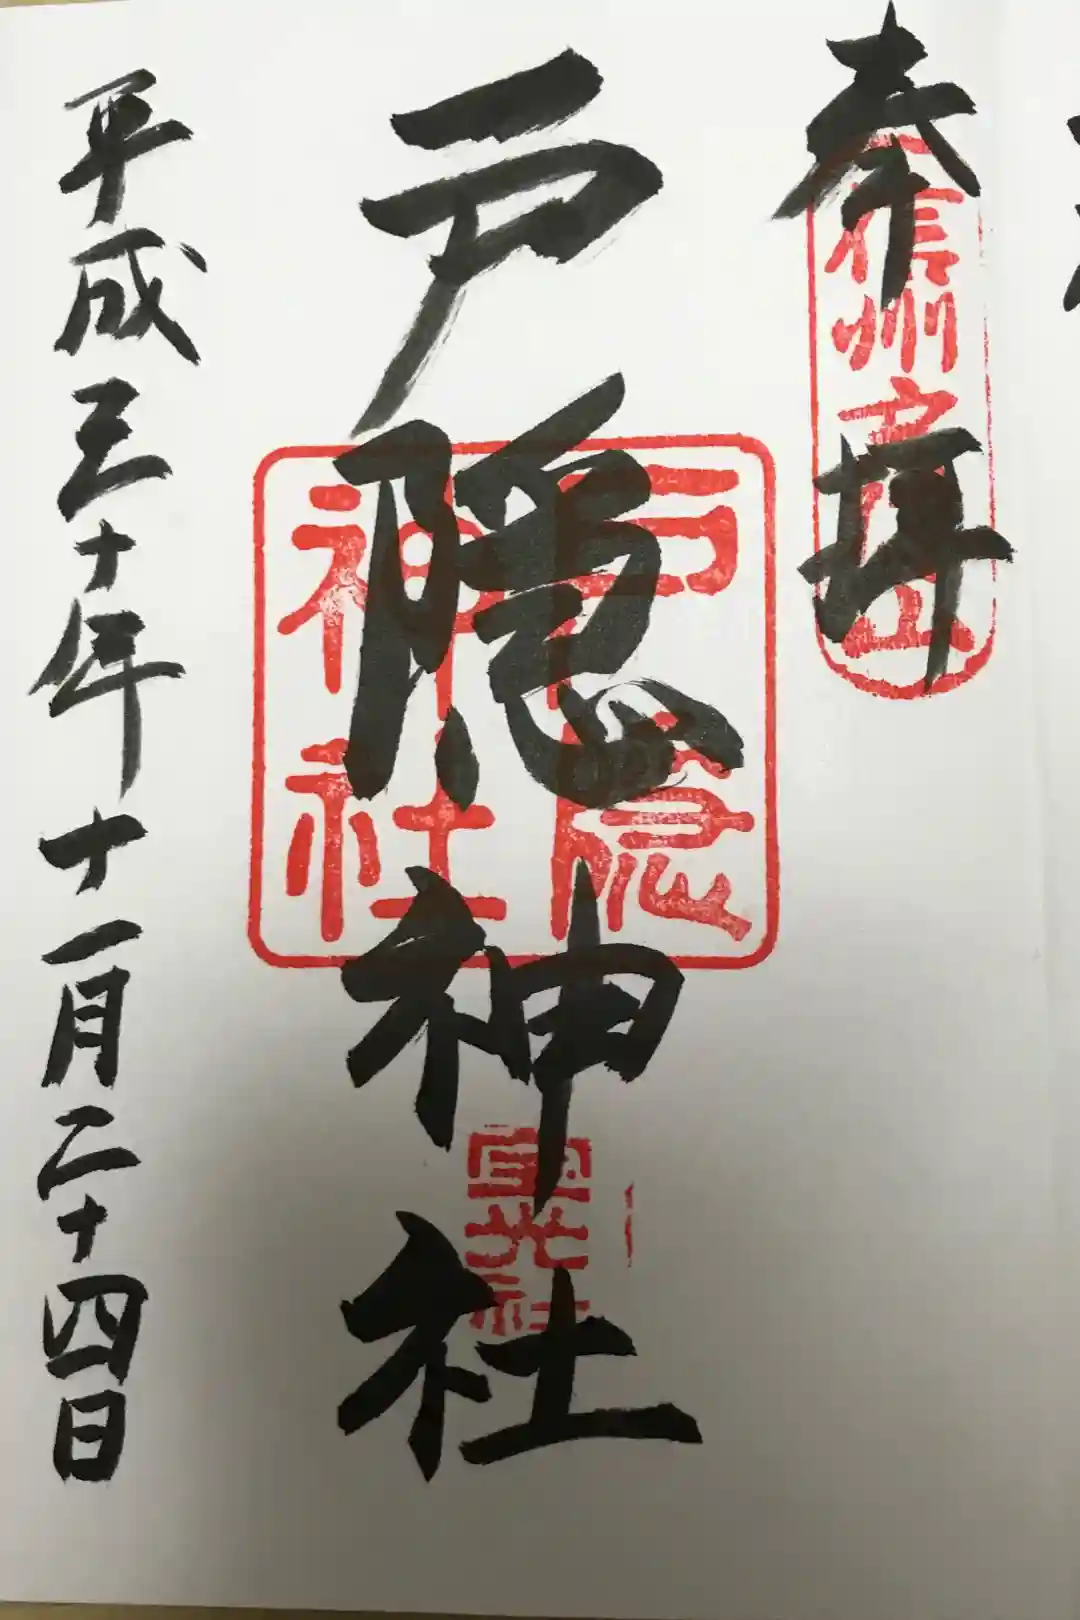 奉拝
信州戸隠山
戸隠神社
戸隠
神社
宝光社
平成三十年十一月二十四日